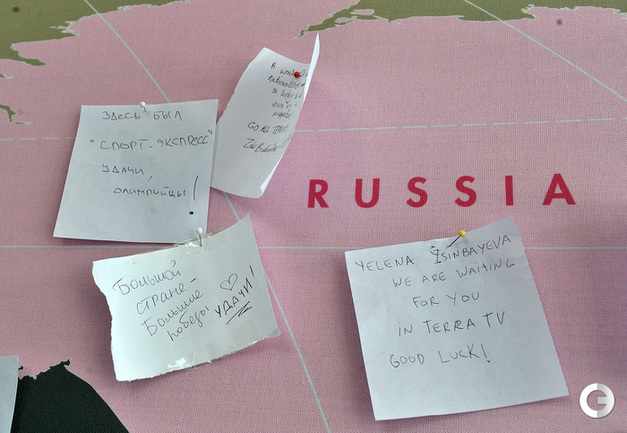 ЗДЕСЬ БЫЛ
"СПОРТ-ЭКСПРЕСС"
УДАЧИ,
ОЛИМПИЙЦЫ!
GO ALL
RUSSIA
Большой
стране-
Большие
победы
УДАЧИ!
YELENA ISINBAYEVA
WE ARE WAITING
FOR YOU
IN TERRA TV
GOOD LUCK!